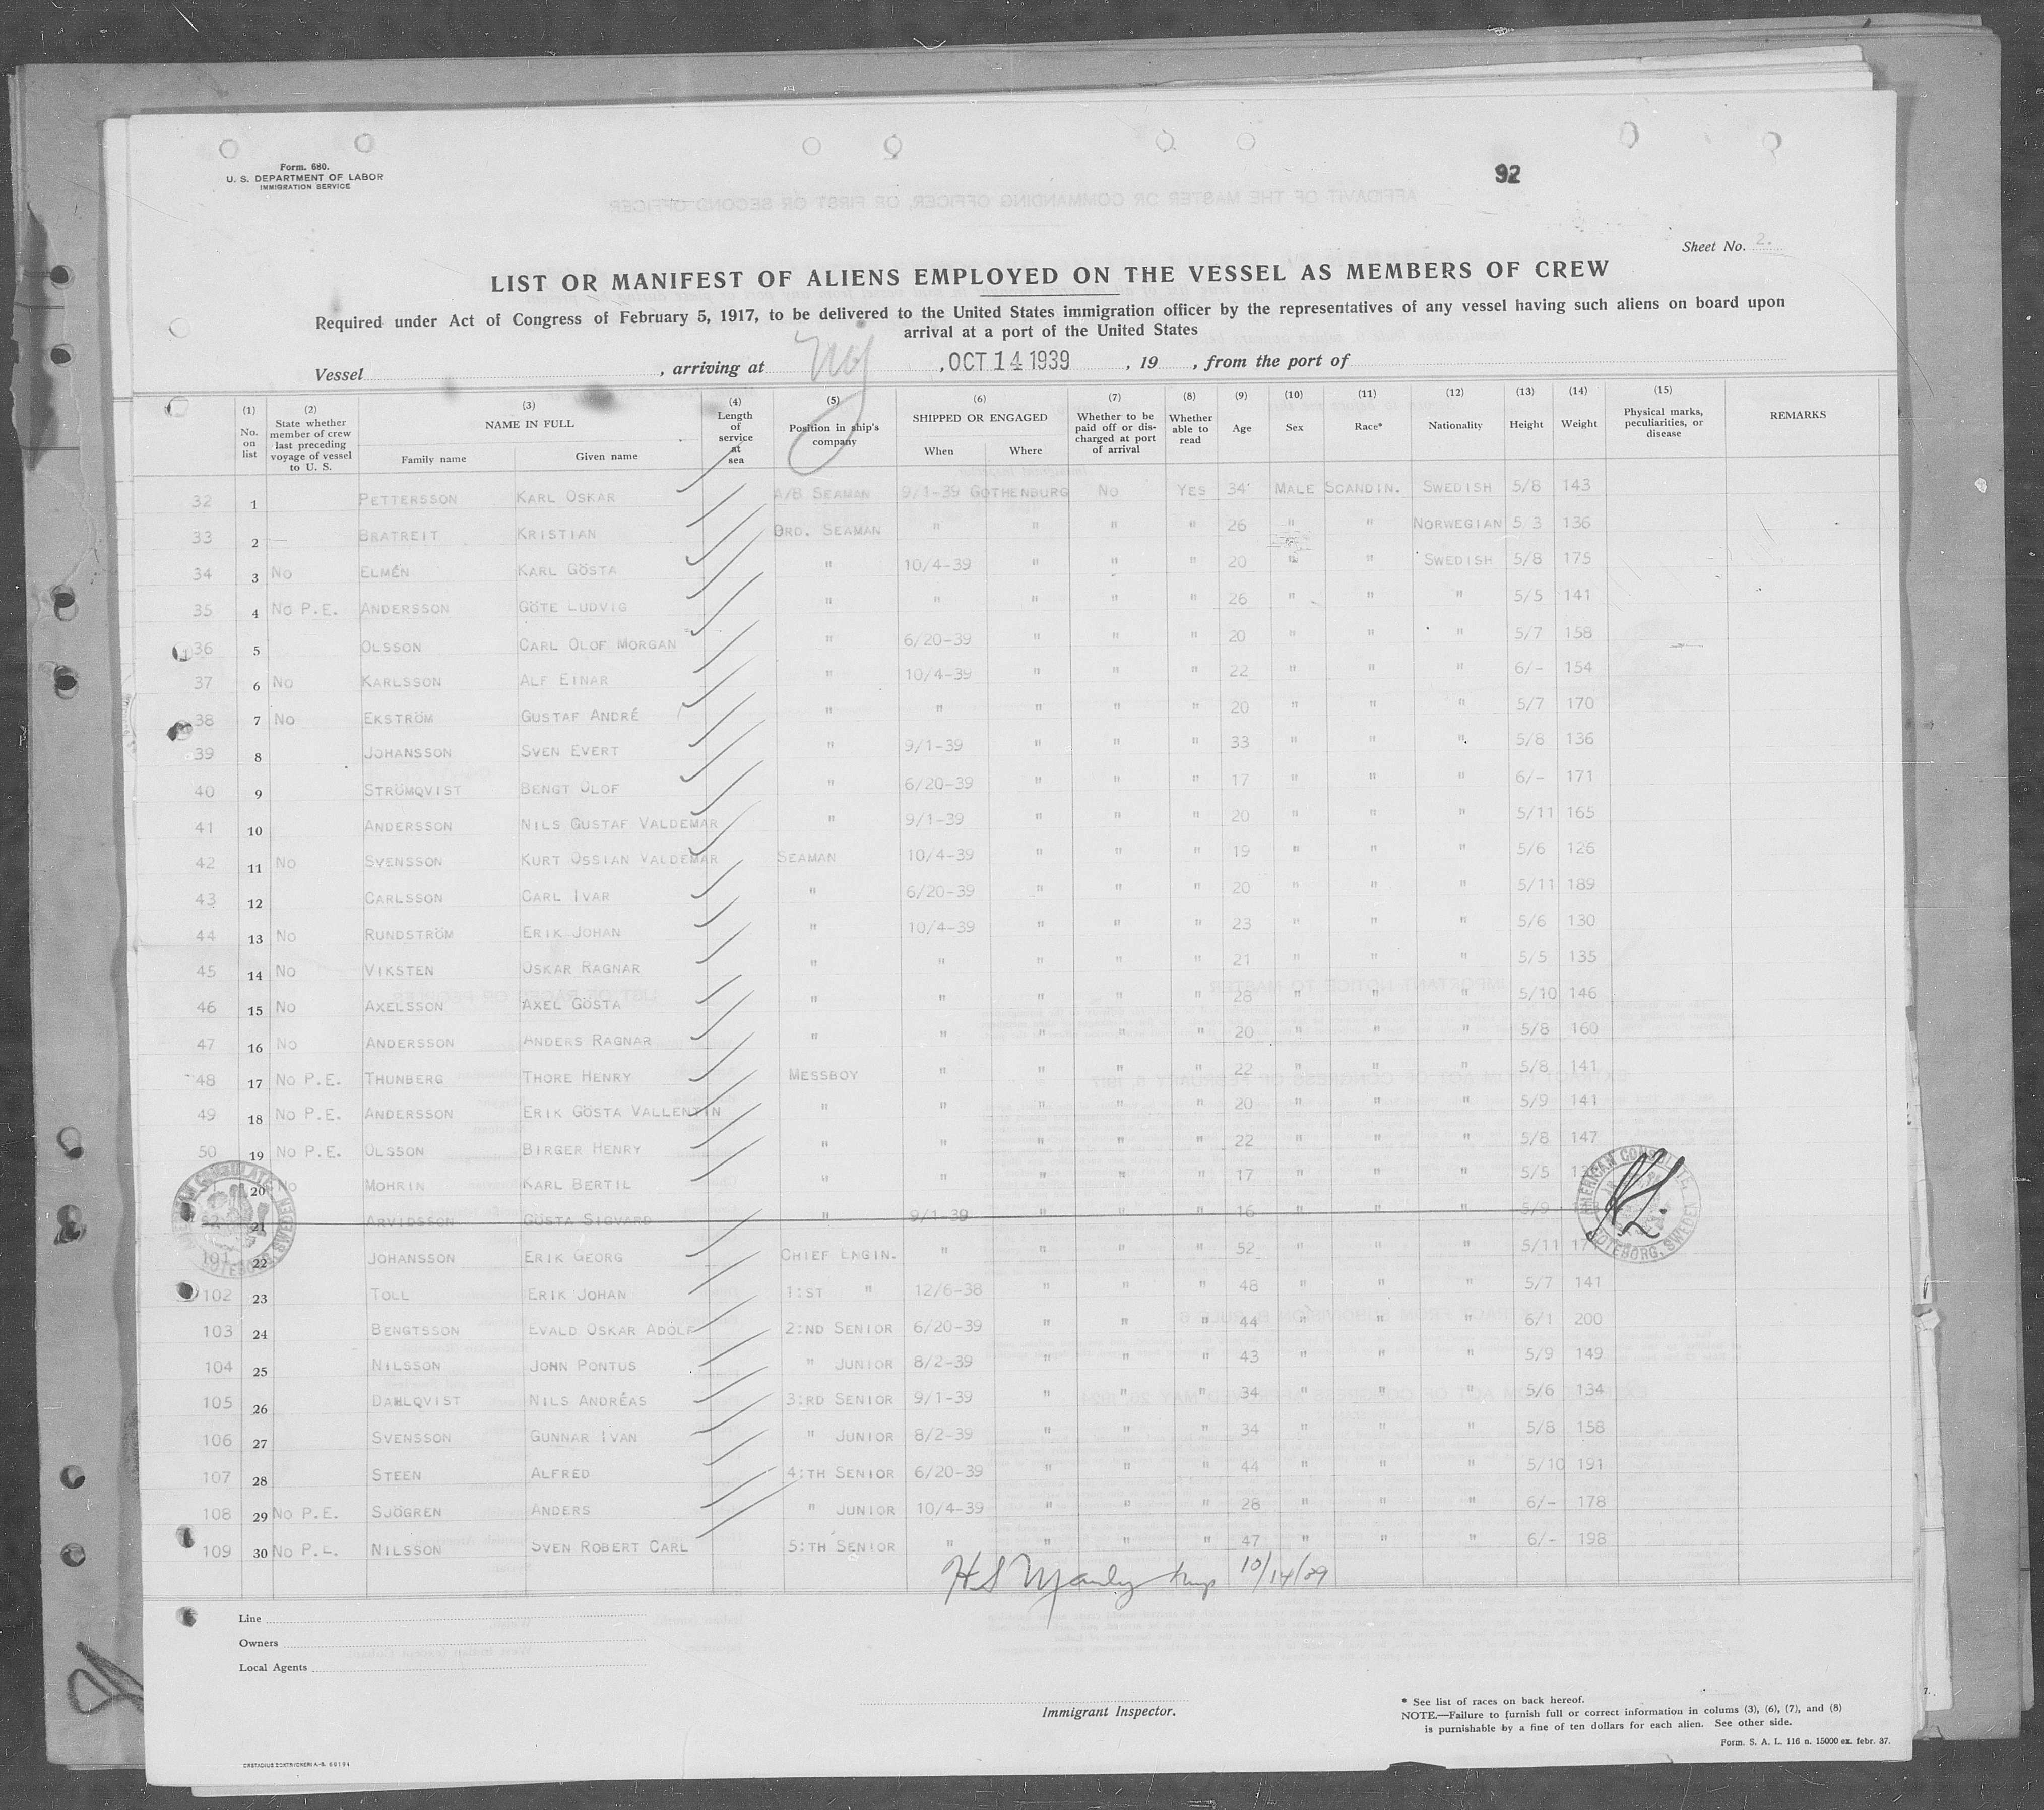 Form. 680.
U. S. DEPARTMENT OF LABOR
IMMIGRATION SERVICE
92
Sheet No. 2.
LIST OR MANIFEST OF ALIENS EMPLOYED ON THE VESSEL AS MEMBERS OF CREW
Required under Act of Congress of February 5, 1917, to be delivered to the United States immigration officer by the representatives of any vessel having such aliens on board upon
arrival at a port of the United States
Vessel , arriving at NY , OCT 14 1939 , 19 , from the port of
(1) No. on list (2) State whether member of crew last preceding voyage of vessel to U. S. (3) NAME IN FULL Family name Given name (4) Length of service at sea (5) Position in ship's company (6) SHIPPED OR ENGAGED When Where (7) Whether to be paid off or discharged at port of arrival (8) Whether able to read (9) Age (10) Sex (11) Race* (12) Nationality (13) Height (14) Weight (15) Physical marks, peculiarities, or disease REMARKS
32 1 PETTERSSON KARL OSKAR A/B SEAMAN 9/1-39 GOTHENBURG NO YES 34 MALE SCANDIN. SWEDISH 5/8 143
33 2 BRATREIT KRISTIAN ORD. SEAMAN " " " " 26 " " NORWEGIAN 5 3 136
34 3 NO ELMÉN KARL GÖSTA " 10/4-39 " " " 20 " " SWEDISH 5/8 175
35 4 NO P.E. ANDERSSON GÖTE LUDVIG " " " " " 26 " " " 5/5 141
36 5 OLSSON CARL OLOF MORGAN " 6/20-39 " " " 20 " " " 5/7 158
37 6 NO KARLSSON ALF EINAR " 10/4-39 " " " 22 " " " 6/- 154
38 7 NO EKSTRÖM GUSTAF ANDRÉ " " " " " 20 " " " 5/7 170
39 8 JOHANSSON SVEN EVERT " 9/1-39 " " " 33 " " " 5/8 136
40 9 STRÖMQVIST BENGT OLOF " 6/20-39 " " " 17 " " " 6/- 171
41 10 ANDERSSON NILS GUSTAF VALDEMAR " 9/1-39 " " " 20 " " " 5/11 165
42 11 NO SVENSSON KURT OSSIAN VALDEMAR SEAMAN 10/4-39 " " " 19 " " " 5/6 126
43 12 CARLSSON CARL IVAR " 6/20-39 " " " 20 " " " 5/11 189
44 13 NO RUNDSTRÖM ERIK JOHAN " 10/4-39 " " " 23 " " " 5/6 130
45 14 NO VIKSTEN OSKAR RAGNAR " " " " " 21 " " " 5/5 135
46 15 NO AXELSSON AXEL GÖSTA " " " " " 28 " " " 5/10 146
47 16 NO ANDERSSON ANDERS RAGNAR " " " " " 20 " " " 5/8 160
48 17 NO P.E. THUNBERG THORE HENRY MESSBOY " " " " 22 " " " 5/8 141
49 18 NO P.E. ANDERSSON ERIK GÖSTA VALLENTIN " " " " " 20 " " " 5/9 141
50 19 NO P.E. OLSSON BIRGER HENRY " " " " " 22 " " " 5/8 147
20 NO MOHRIN KARL BERTIL " " " " " 17 " " " 5/5
21 ARVIDSSON GÖSTA SIGVARD " 9/1-39 " " " 16 " " " 5/9
101 22 JOHANSSON ERIK GEORG CHIEF ENGIN. " " " " 52 " " " 5/11
102 23 TOLL ERIK JOHAN 1:ST " 12/6-38 " " " 48 " " " 5/7 141
103 24 BENGTSSON EVALD OSKAR ADOLF 2:ND SENIOR 6/20-39 " " " 44 " " " 6/1 200
104 25 NILSSON JOHN PONTUS " JUNIOR 8/2-39 " " " 43 " " " 5/9 149
105 26 DAHLQVIST NILS ANDRÉAS 3:RD SENIOR 9/1-39 " " " 34 " " " 5/6 134
106 27 SVENSSON GUNNAR IVAN " JUNIOR 8/2-39 " " " 34 " " " 5/8 158
107 28 STEEN ALFRED 4:TH SENIOR 6/20-39 " " " 44 " " " 5/10 191
108 29 NO P.E. SJÖGREN ANDERS " JUNIOR 10/4-39 " " " 28 " " " 6/- 178
109 30 NO P.E. NILSSON SVEN ROBERT CARL 5:TH SENIOR " " " " 47 " " " 6/- 198
AMERICAN CONSULATE GÖTEBORG, SWEDEN
10/14/39
Line
Owners
Local Agents
Immigrant Inspector.
* See list of races on back hereof.
NOTE.—Failure to furnish full or correct information in colums (3), (6), (7), and (8)
is punishable by a fine of ten dollars for each alien. See other side.
Form. S. A. L. 116 n. 15000 ex. febr. 37.